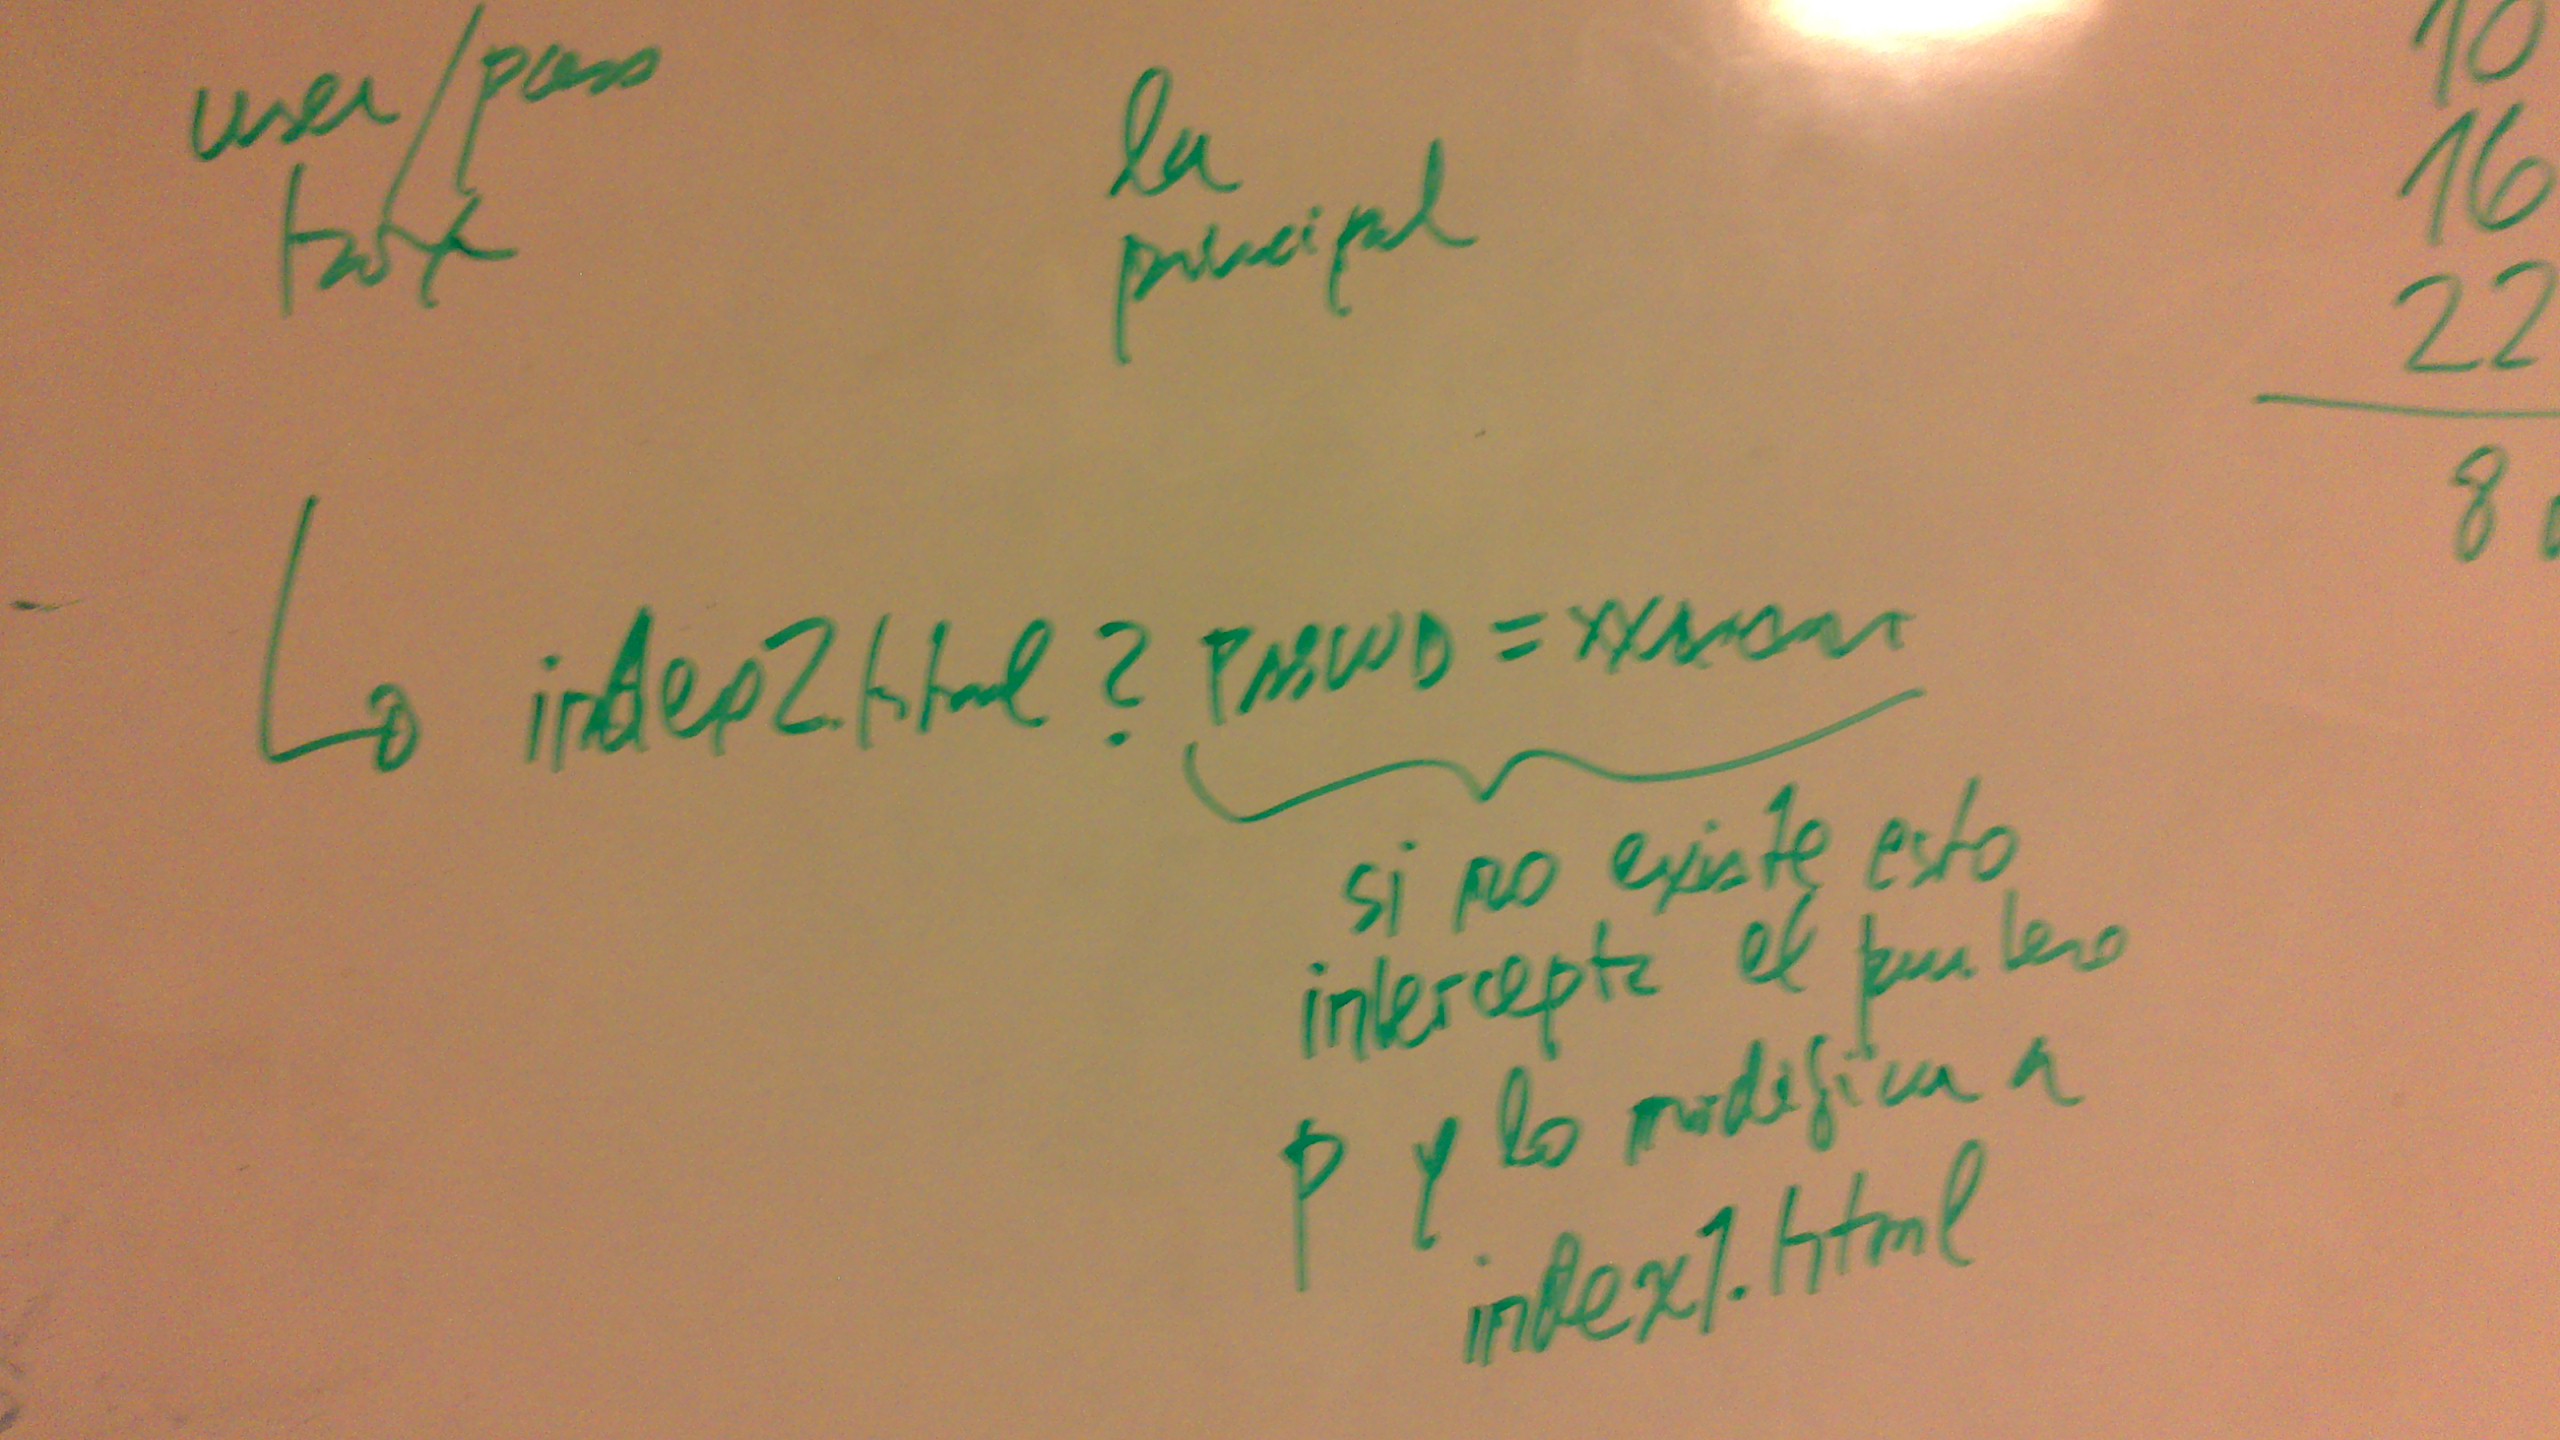 user/pass
la
principal
10
16
22
8
index2.html ? PASSWD = xx
si no existe esto
intercepta el puntero
p y lo modifica a
index1.html